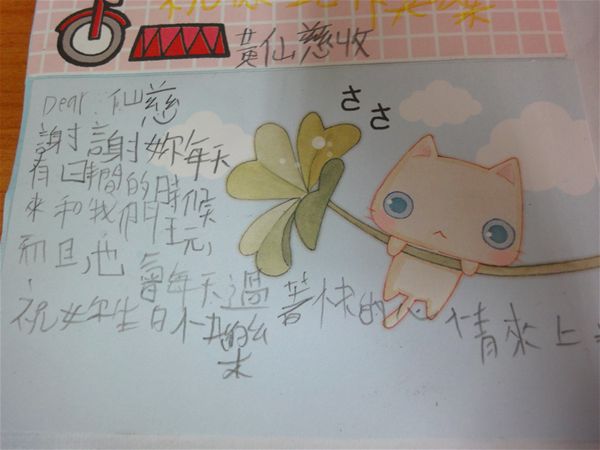 黃仙慈收
Dear:仙慈
さ
さ
謝謝妳每天
有間的時候
來和我們玩,
而且,也會每天過著快的心情來上
祝妳生日快